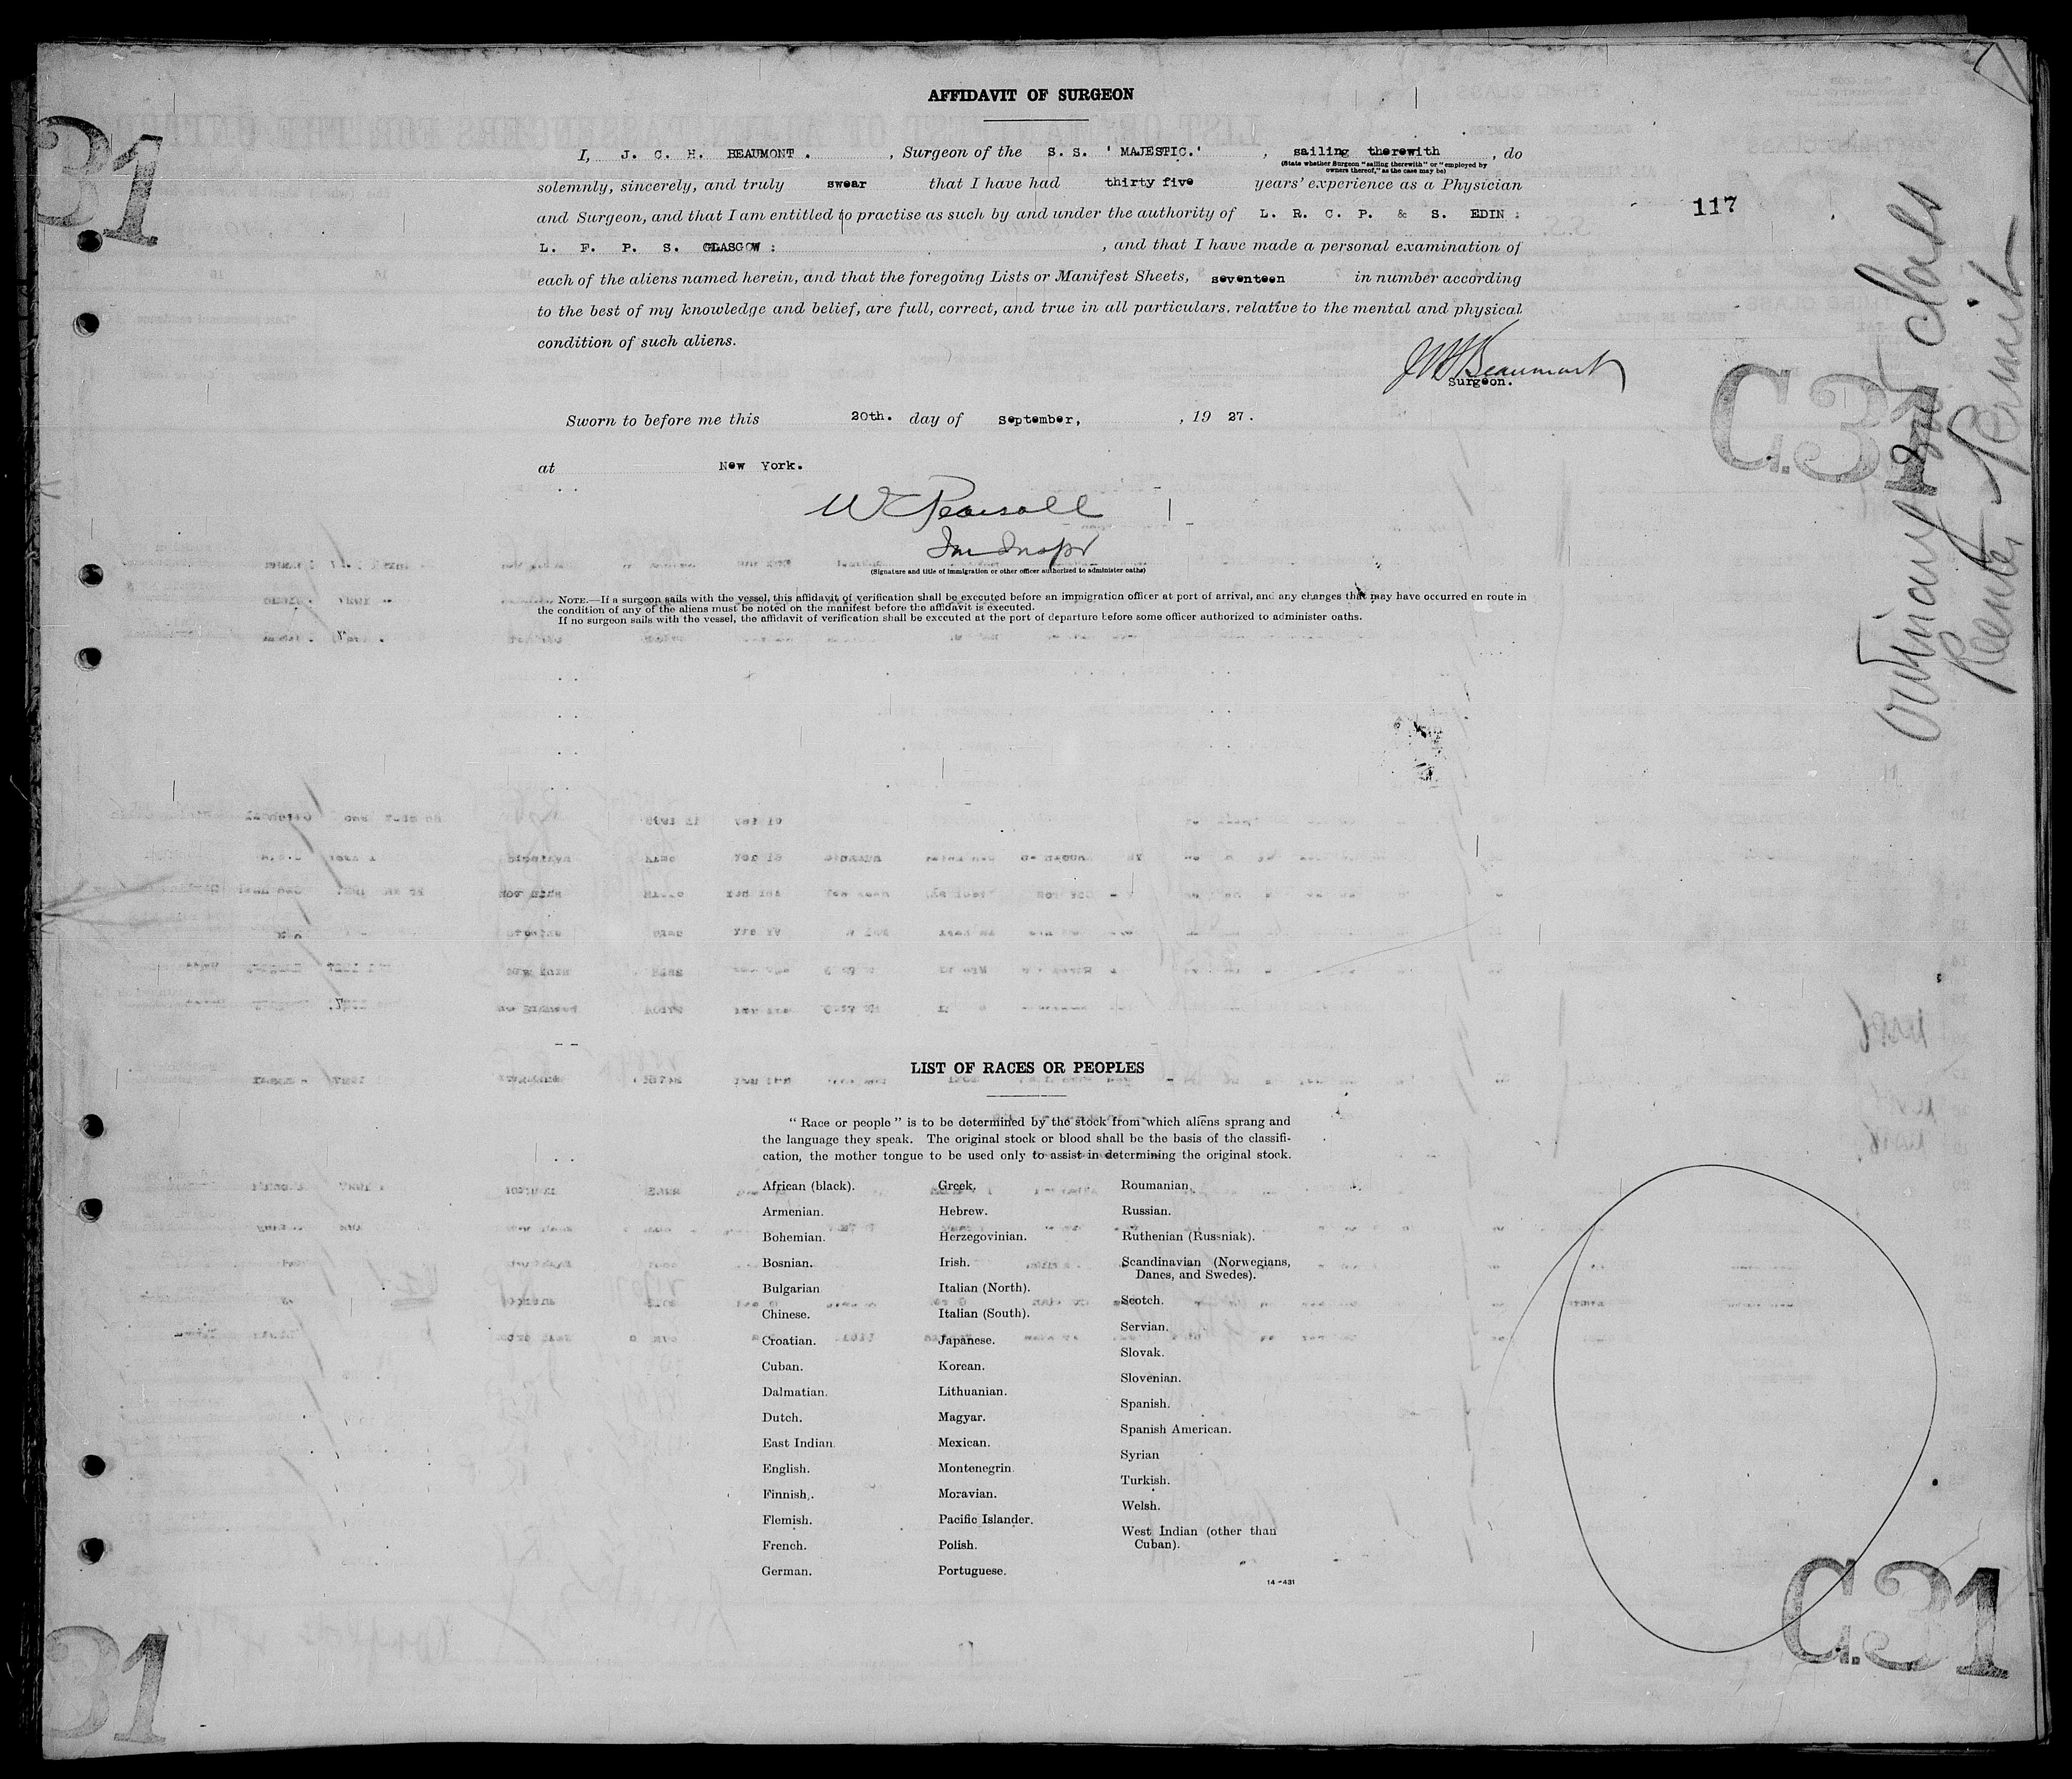 AFFIDAVIT OF SURGEON
I, J. C. H. BEAUMONT . , Surgeon of the S. S. ' MAJESTIC.' , sailing therewith , do
(State whether Surgeon "sailing therewith" or "employed by owners thereof," as the case may be)
solemnly, sincerely, and truly swear that I have had thirty five years' experience as a Physician
and Surgeon, and that I am entitled to practise as such by and under the authority of L. R. C. P. & S. EDIN :
L. F. P. S. GLASGOW : , and that I have made a personal examination of
each of the aliens named herein, and that the foregoing Lists or Manifest Sheets, seventeen in number according
to the best of my knowledge and belief, are full, correct, and true in all particulars. relative to the mental and physical
condition of such aliens.
JCHBeaumont
Surgeon.
Sworn to before me this 20th. day of September, , 19 27.
at New York.
W Pearsall
Im Inspr
(Signature and title of immigration or other officer authorized to administer oaths)
NOTE.—If a surgeon sails with the vessel, this affidavit of verification shall be executed before an immigration officer at port of arrival, and any changes that may have occurred en route in
the condition of any of the aliens must be noted on the manifest before the affidavit is executed.
If no surgeon sails with the vessel, the affidavit of verification shall be executed at the port of departure before some officer authorized to administer oaths.
117
Ordinary 2nd Class
Reenter Permit
31
C.31
LIST OF RACES OR PEOPLES
"Race or people" is to be determined by the stock from which aliens sprang and
the language they speak. The original stock or blood shall be the basis of the classifi-
cation, the mother tongue to be used only to assist in determining the original stock.
African (black).
Armenian.
Bohemian.
Bosnian.
Bulgarian
Chinese.
Croatian.
Cuban.
Dalmatian.
Dutch.
East Indian.
English.
Finnish.
Flemish.
French.
German.
Greek.
Hebrew.
Herzegovinian.
Irish.
Italian (North).
Italian (South).
Japanese.
Korean.
Lithuanian.
Magyar.
Mexican.
Montenegrin.
Moravian.
Pacific Islander.
Polish.
Portuguese.
Roumanian.
Russian.
Ruthenian (Russniak).
Scandinavian (Norwegians,
Danes, and Swedes).
Scotch.
Servian.
Slovak.
Slovenian.
Spanish.
Spanish American.
Syrian
Turkish.
Welsh.
West Indian (other than
Cuban).
14—431
31
C.31